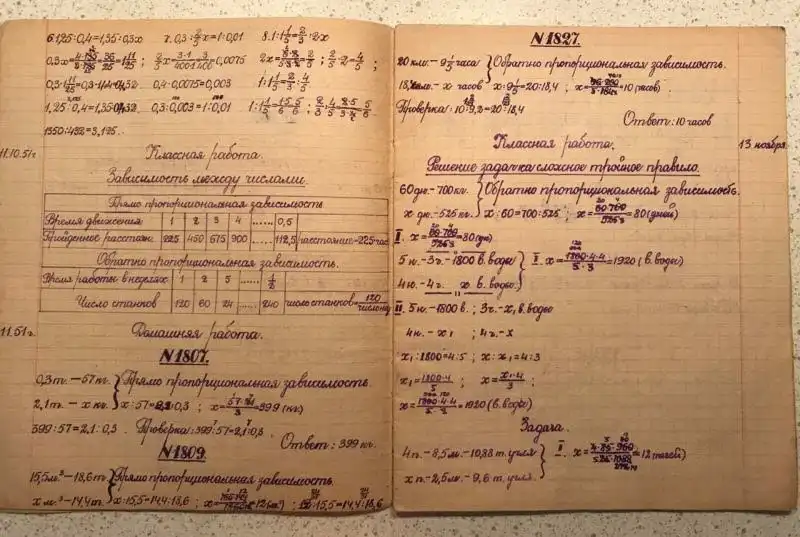 6. 1,25:0,4=1,35:0,3x 7. 0,3:2/x=1:0,01 8. 1:1 1/5=2/3:2x
0,3·11/25=0,3·1,44=0,432 0,4·0,0075=0,003 1:1 1/5=2/3:4/5
1,25:0,4=1,35:0,432 0,3:0,003=1:0,01
1350:432=3,125.
11.10.51г.
Классная работа.
Зависимость между числами.
Прямо пропорциональная зависимость
Время движения 1 2 3 4 ...... 0,5
Пройденное расстоян. 225 450 675 900 ...... 112,5 расстояние=225·час
Обратно пропорциональная зависимость.
Время работы в неделях 1 2 5 ...... 1/2
Число станков 120 60 24 ...... 240 число станков=120/число
11.51г.
Домашняя работа.
N1807.
0,3т. – 57кг. } Прямо пропорциональная зависимость.
2,1т. – x кг. x:57=2,1:0,3 ; x=57·21/3=399 (кг.)
399:57=2,1:0,3. Проверка: 399:57=2,1:0,3
Ответ: 399 кг.
N1809.
15,5м.³–18,6т. } Прямо пропорциональная зависимость.
x м.³–14,4т. x:15,5=14,4:18,6 ; =12(м³) ; 12:15,5=14,4:18,6
N1827.
20 км. – 9 1/5 часа } Обратно пропорциональная зависимость.
18,4км. – x часов x:9 1/5=20:18,4 ; =10 (часов)
Проверка: 10:9,2=20:18,4
Ответ: 10 часов
Классная работа.
13 ноября
Решение задач на сложное тройное правило.
60дн.–700кг. } Обратно пропорциональная зависимость.
x дн.–525кг. x:60=700:525 ; x=60·700/525=80(дней)
I. x=60·700/525=80(дн)
5н.–3ч.–1800 в. воды } I. x=1800·4·4/5·3=1920 (в. воды)
4н.–4ч. x в. воды
II. 5н.–1800 в. ; 3ч.–x₁ в. воды
4н.–x₁ ; 4ч.–x
x₁:1800=4:5 ; x:x₁=4:3
x₁=1800·4/5 ; x=x₁·4/3 ;
x=1800·4·4/5·3=1920 (в. воды)
Задача.
4п.–8,5м.–10,88 т. угля } I. =12(печей)
x п.–2,5м.–9,6 т. угля.